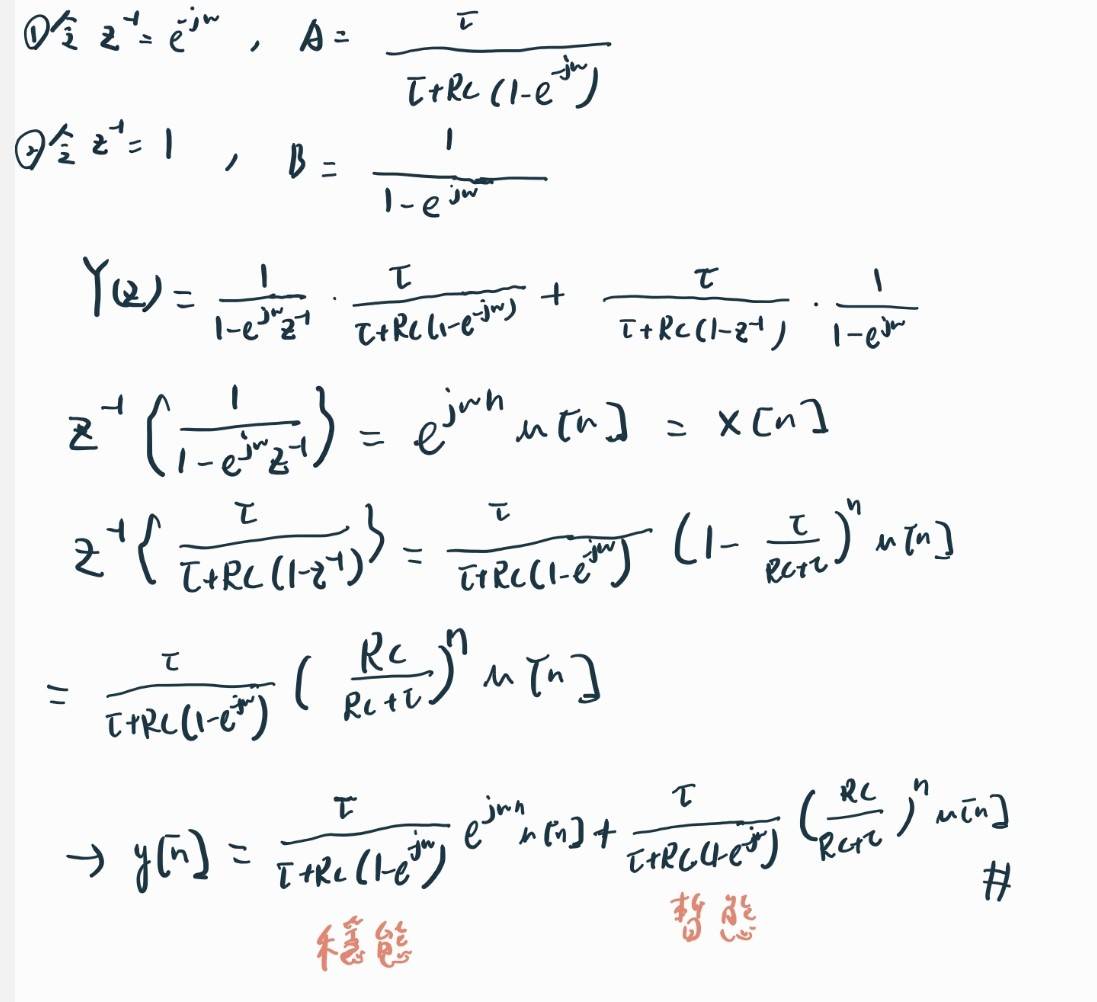 ①令 z⁻¹ = e^{-jw} , A = τ / (τ+RC(1-e^{-jw}))
②令 z⁻¹ = 1 , B = 1 / (1-e^{jw})
Y(z) = 1/(1-e^{jw}z⁻¹) · τ/(τ+RC(1-e^{-jw})) + τ/(τ+RC(1-z⁻¹)) · 1/(1-e^{jw})
z⁻¹{ 1/(1-e^{jw}z⁻¹) } = e^{jwn} u[n] = x[n]
z⁻¹{ τ/(τ+RC(1-z⁻¹)) } = τ/(τ+RC(1-e^{-jw})) (1 - τ/(RC+τ))^n u[n]
= τ/(τ+RC(1-e^{-jw})) ( RC/(RC+τ) )^n u[n]
→ y[n] = τ/(τ+RC(1-e^{-jw})) e^{jwn} u[n] + τ/(τ+RC(1-e^{-jw})) ( RC/(RC+τ) )^n u[n] #
穩態 暫態